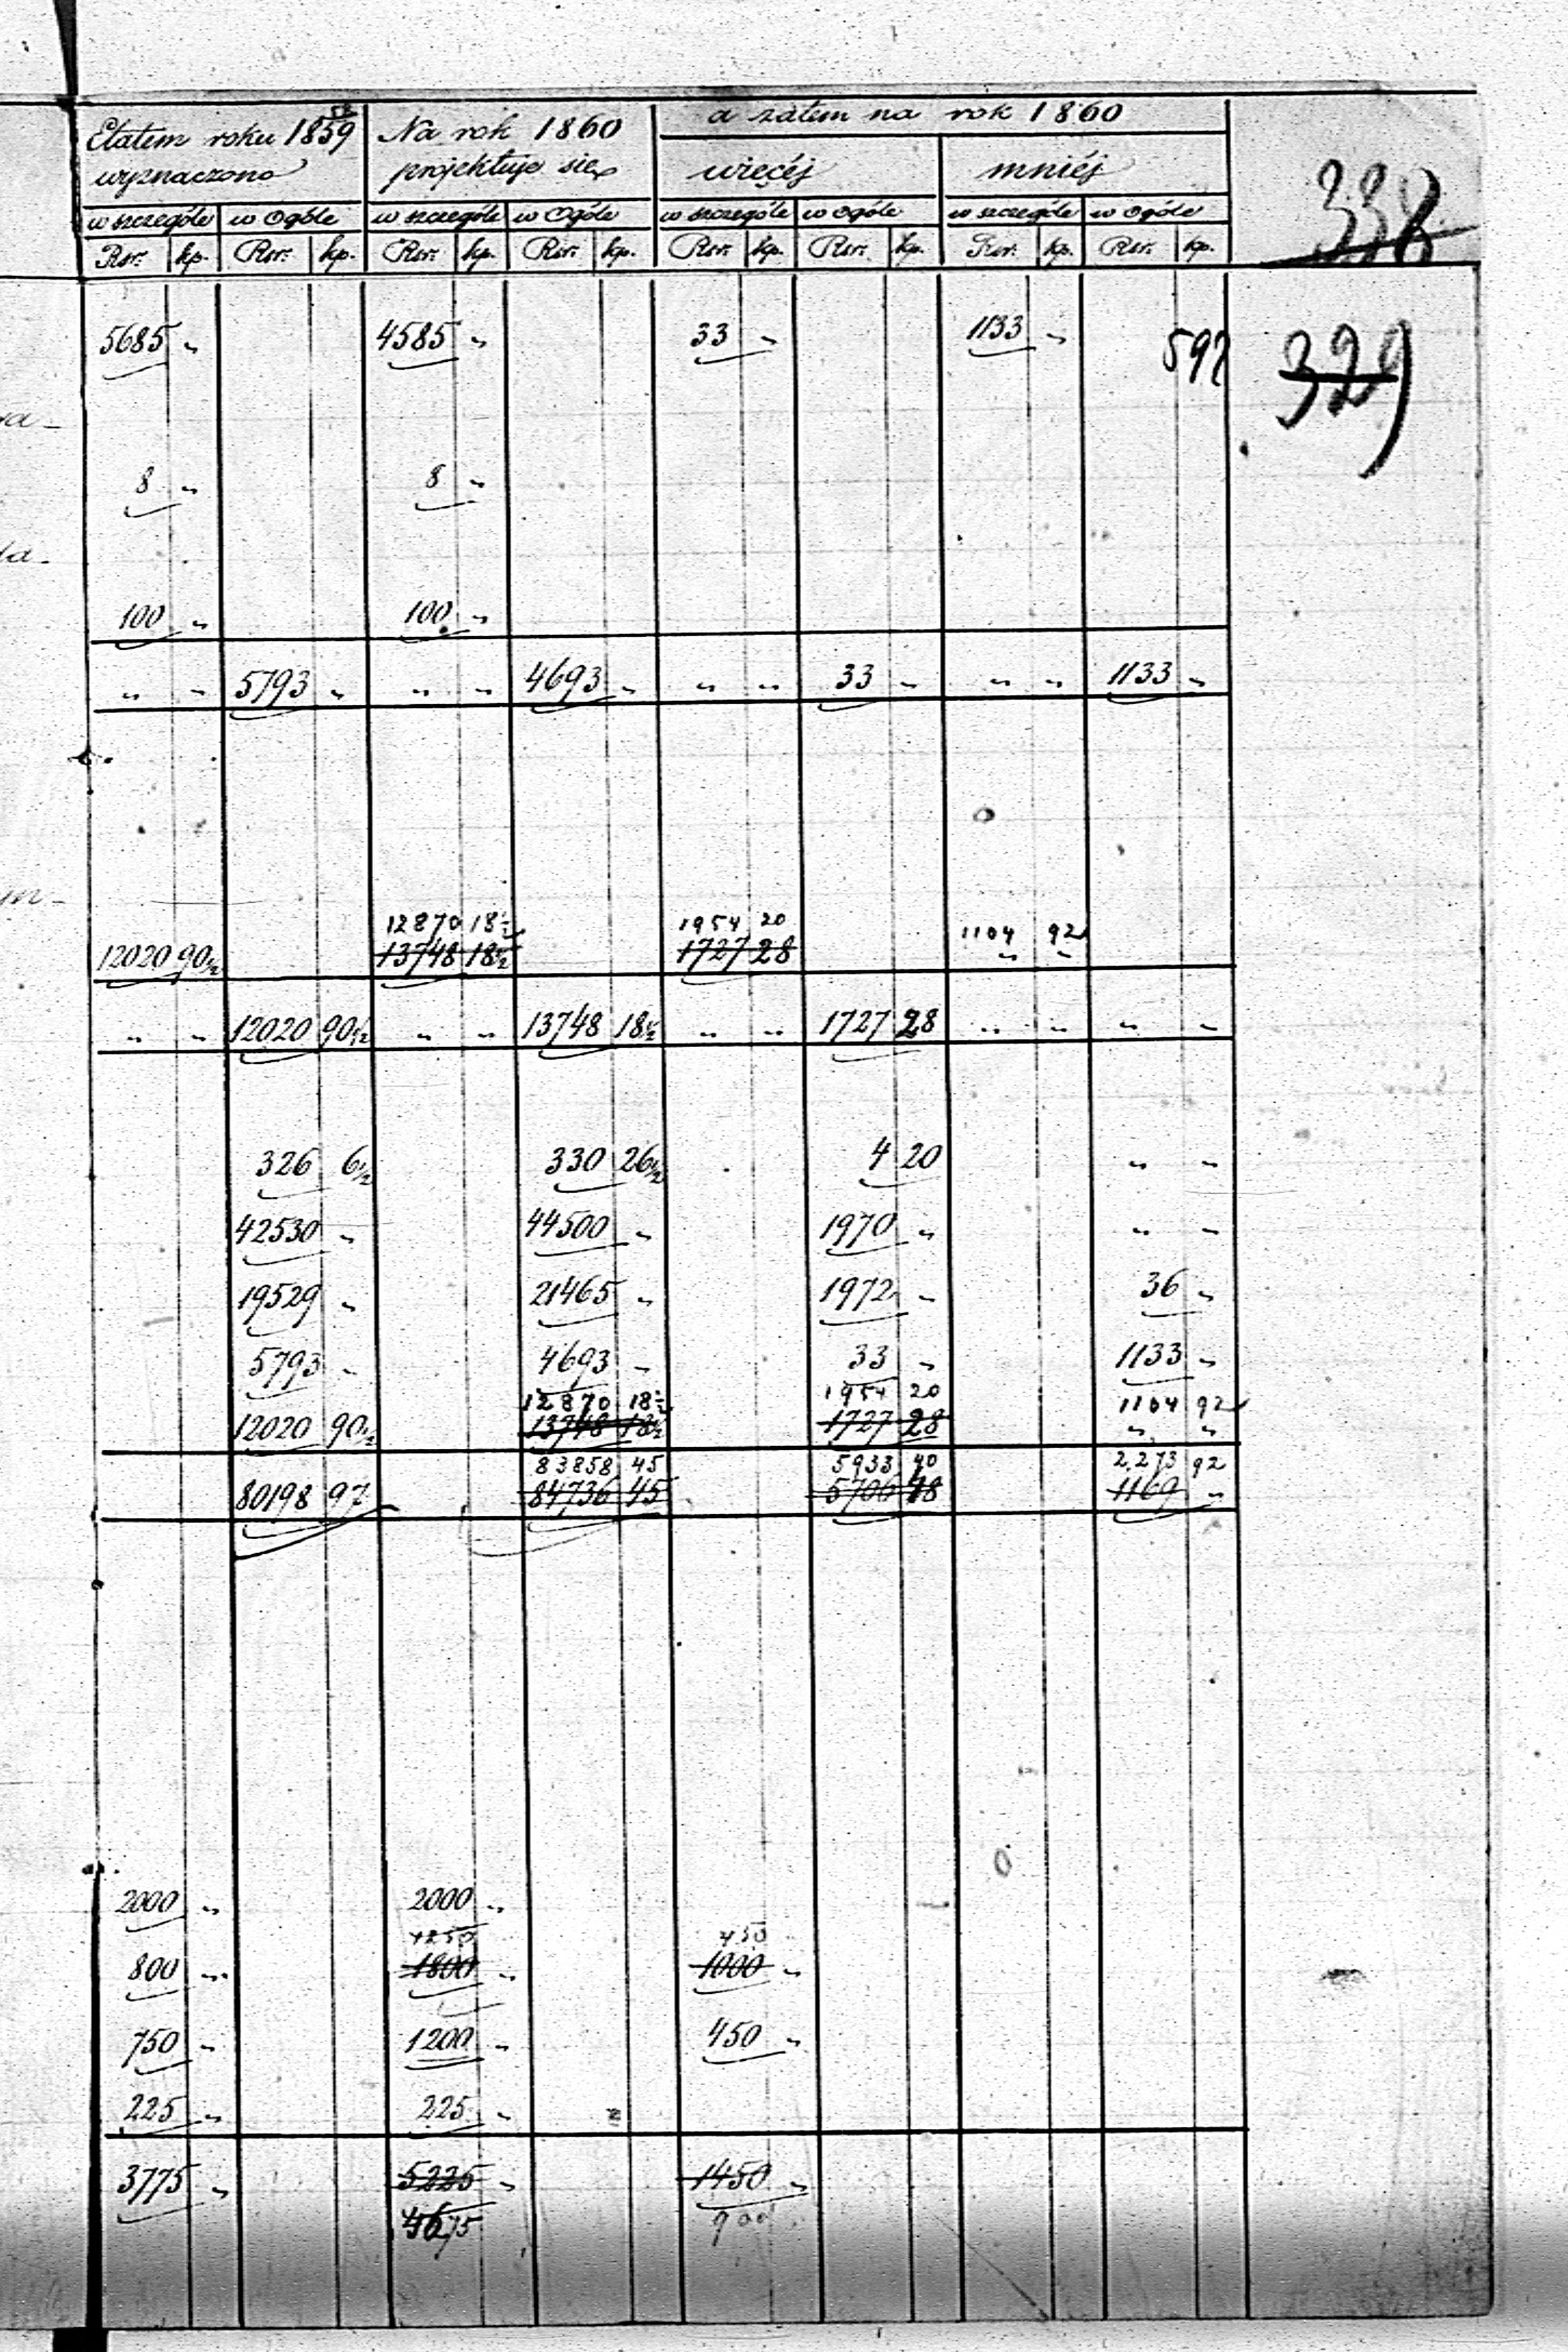 Etatem roku 1859 Na rok 1860 a zatem na rok 1860
wyznaczono projektuje się więcéj mniéj
w szczególe w ogóle w szczególe w ogóle w szczególe w ogóle w szczególe w ogóle
Rsr. kp. Rsr. kp. Rsr. kp. Rsr. kp. Rsr. kp. Rsr. kp. Rsr. kp. Rsr. kp.
338
5685 „ 4585 „ 33 „ 1133 „
592 329
8 „ 8 „
100 „ 100 „
„ „ 5793 „ „ „ 4693 „ „ „ 33 „ „ „ 1133 „
12870 18½ 1954 20 1104 92
12020 90½ 13748 18½ 1727 28 „ „
„ „ 12020 90½ „ „ 13748 18½ „ „ 1727 28 „ „ „ „
326 6½ 330 26½ 4 20 „ „
42530 „ 44500 „ 1970 „ „ „
19529 „ 21465 „ 1972 „ 36 „
5793 „ 4693 „ 33 „ 1133 „
12870 18½ 1954 20 1104 92
12020 90½ 13748 18½ 1727 28 „ „
83858 45 5933 40 2273 92
80198 97 84736 45 5706 48 1169 „
2000 „ 2000 „
1250 450
800 „ 1800 „ 1000 „
750 „ 1200 „ 450 „
225 „ 225 „
3775 „ 5225 „ 1450 „
4675 900